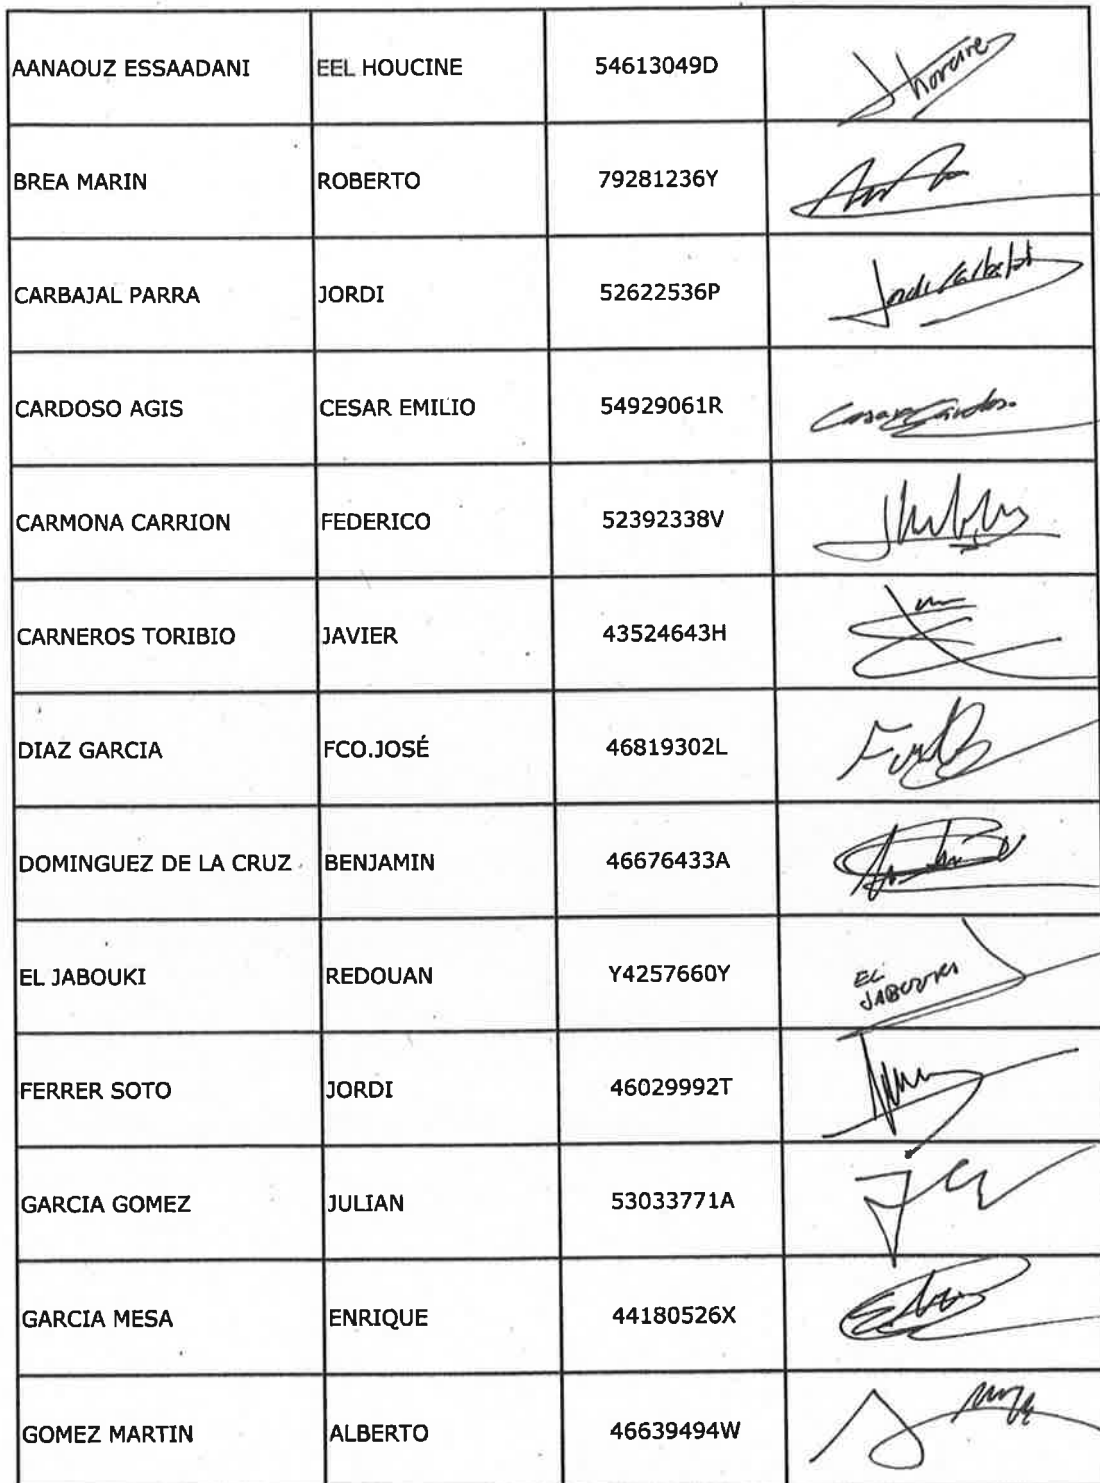 AANAOUZ ESSAADANI EEL HOUCINE 54613049D
BREA MARIN ROBERTO 79281236Y
CARBAJAL PARRA JORDI 52622536P
CARDOSO AGIS CESAR EMILIO 54929061R
CARMONA CARRION FEDERICO 52392338V
CARNEROS TORIBIO JAVIER 43524643H
DIAZ GARCIA FCO.JOSÉ 46819302L
DOMINGUEZ DE LA CRUZ BENJAMIN 46676433A
EL JABOUKI REDOUAN Y4257660Y EL
JABOUKI
FERRER SOTO JORDI 46029992T
GARCIA GOMEZ JULIAN 53033771A
GARCIA MESA ENRIQUE 44180526X
GOMEZ MARTIN ALBERTO 46639494W